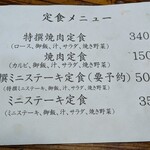 定食メニュー
特撰焼肉定食 340
(ロース、御飯、汁、サラダ、焼き野菜)
焼肉定食 150
(カルビ、御飯、汁、サラダ、焼き野菜)
撰ミニステーキ定食(要予約) 50
(特撰ミニステーキ、御飯、汁、サラダ、焼き野菜)
ミニステーキ定食 35
(ミニステーキ、御飯、汁、サラダ、焼き野菜)